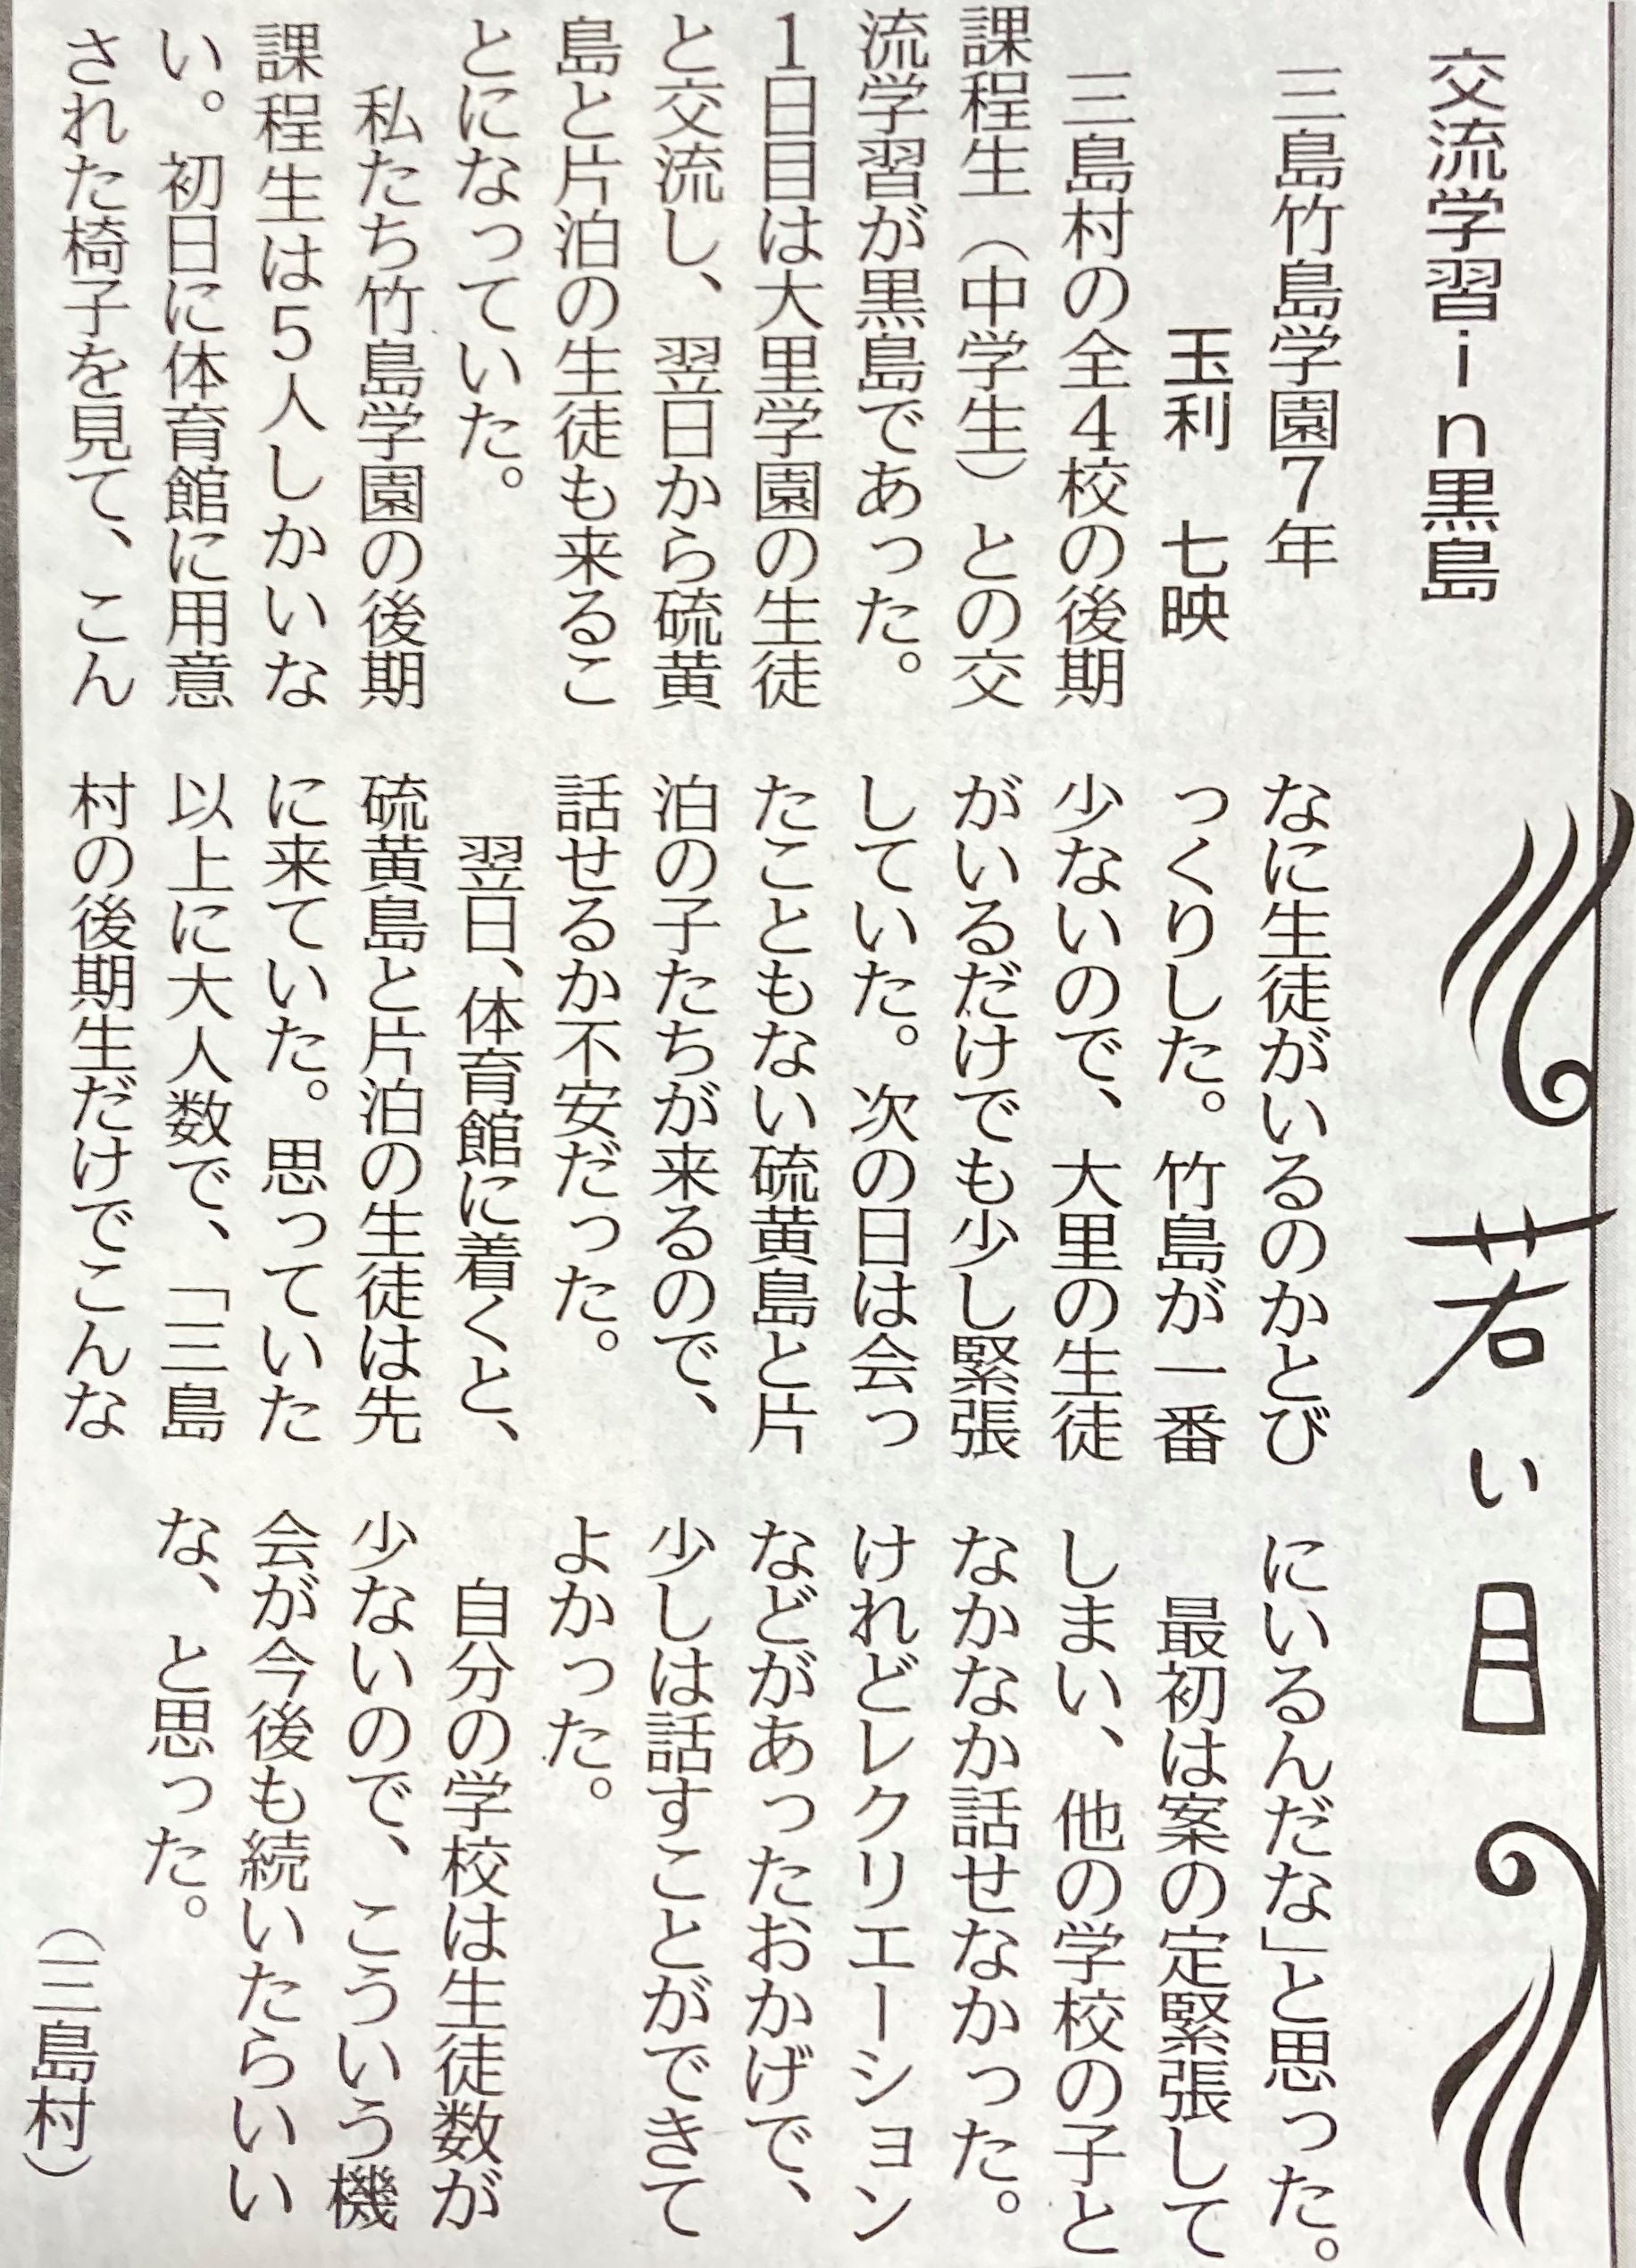 若い日
交流学習in黒島
三島竹島学園7年
玉利 七映
三島村の全4校の後期
課程生（中学生）との交
流学習が黒島であった。
1日目は大里学園の生徒
と交流し、翌日から硫黄
島と片泊の生徒も来るこ
とになっていた。
私たち竹島学園の後期
課程生は5人しかいな
い。初日に体育館に用意
された椅子を見て、こん
なに生徒がいるのかとび
っくりした。竹島が一番
少ないので、大里の生徒
がいるだけでも少し緊張
していた。次の日は会っ
たこともない硫黄島と片
泊の子たちが来るので、
話せるか不安だった。
翌日、体育館に着くと、
硫黄島と片泊の生徒は先
に来ていた。思っていた
以上に大人数で、「三島
村の後期生だけでこんな
にいるんだな」と思った。
最初は案の定緊張して
しまい、他の学校の子と
なかなか話せなかった。
けれどレクリエーション
などがあったおかげで、
少しは話すことができて
よかった。
自分の学校は生徒数が
少ないので、こういう機
会が今後も続いたらいい
な、と思った。
（三島村）